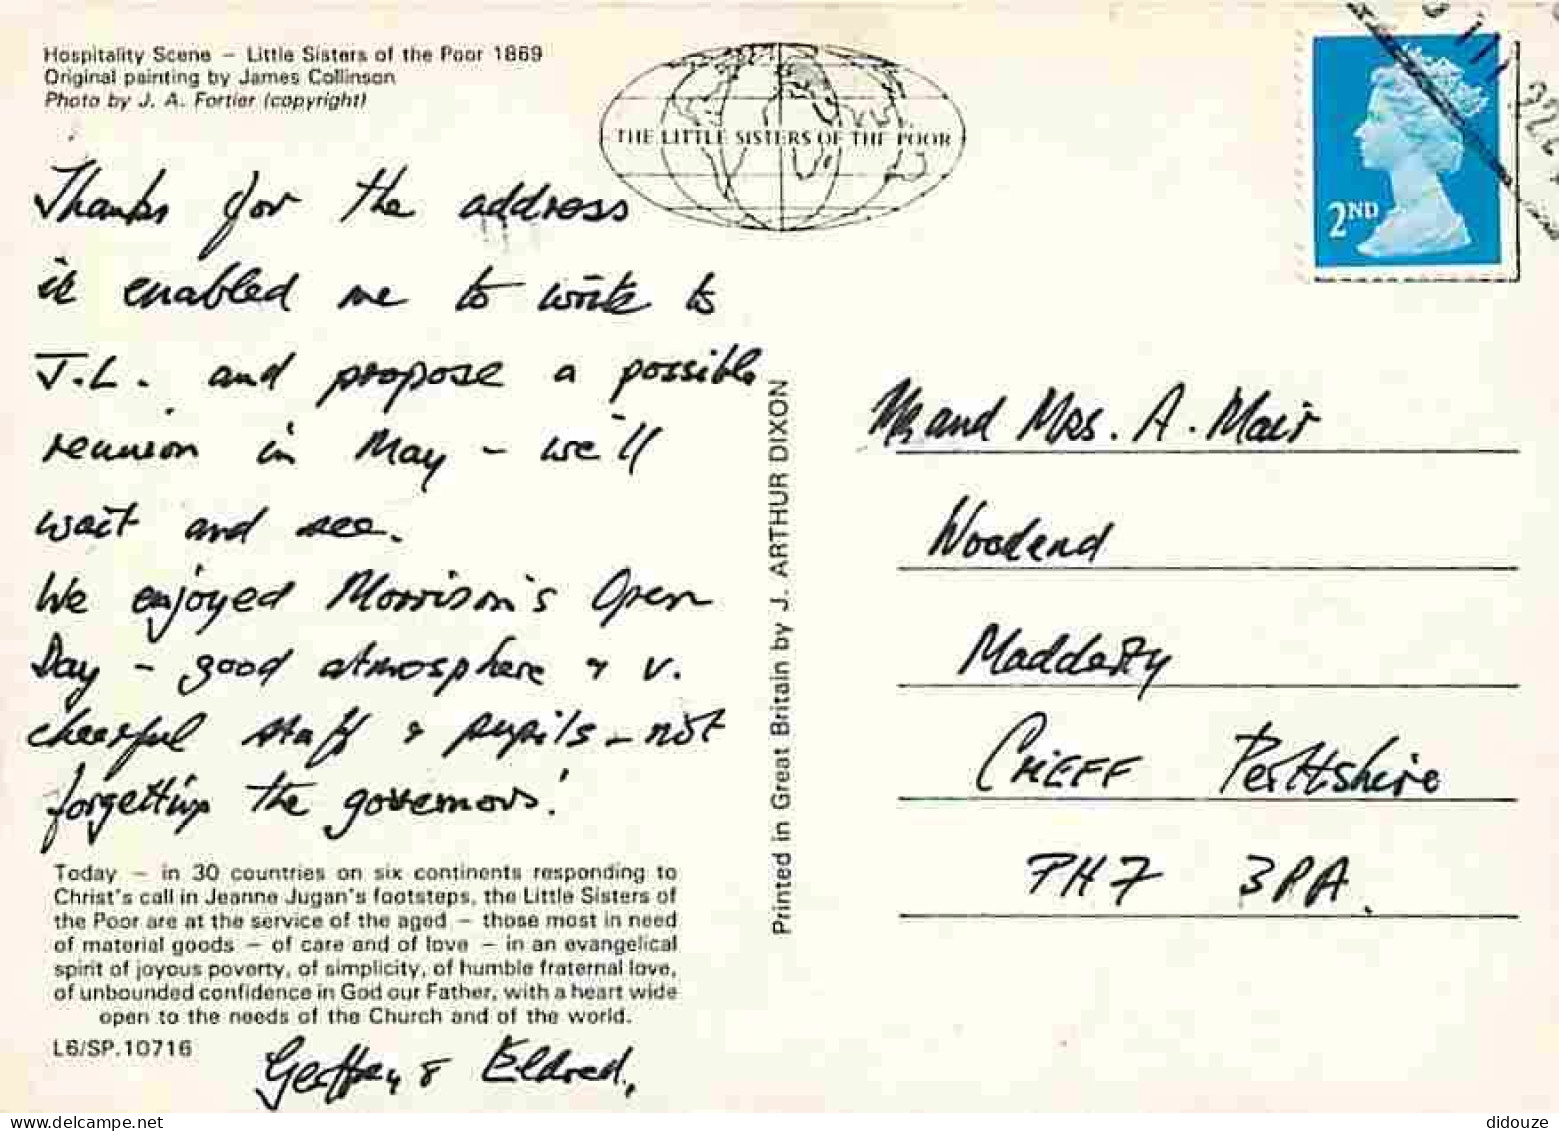 Hospitality Scene – Little Sisters of the Poor 1869
Original painting by James Collinson
Photo by J. A. Fortier (copyright)
THE LITTLE SISTERS OF THE POOR
2ND
Thanks for the address
it enabled me to write to
J.L. and propose a possible
reunion in May – we'll
wait and see.
We enjoyed Morrison's Open
Day – good atmosphere & v.
cheerful staff & pupils – not
forgetting the governors!
Today – in 30 countries on six continents responding to
Christ's call in Jeanne Jugan's footsteps, the Little Sisters of
the Poor are at the service of the aged – those most in need
of material goods – of care and of love – in an evangelical
spirit of joyous poverty, of simplicity, of humble fraternal love,
of unbounded confidence in God our Father, with a heart wide
open to the needs of the Church and of the world.
L6/SP.10716
Geoffrey & Eldred,
Printed in Great Britain by J. ARTHUR DIXON
Mr and Mrs. A. Mair
Woodend
Madderty
CRIEFF Perthshire
PH7 3PA.
delcampe.net
didouze